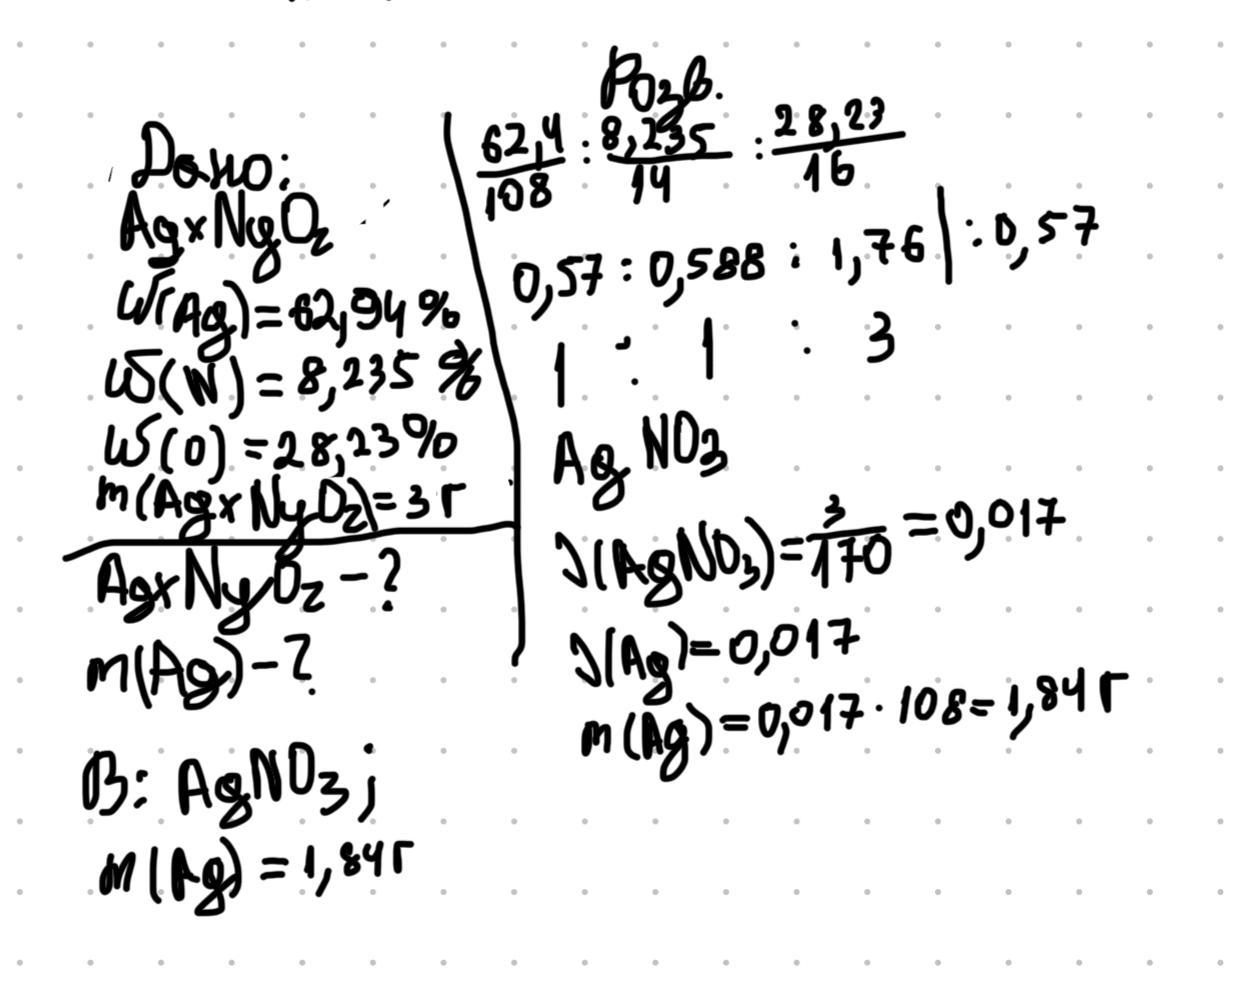 Дано:
AgxNyOz
W(Ag)=62,94%
W(N)=8,235%
W(O)=28,23%
m(AgxNyOz)=3г
AgxNyOz-?
m(Ag)-?
В: AgNO3;
m(Ag)=1,84г
Розв.
62,4/108 : 8,235/14 : 28,23/16
0,57 : 0,588 : 1,76 | : 0,57
1 : 1 : 3
AgNO3
ν(AgNO3)=3/170=0,017
ν(Ag)=0,017
m(Ag)=0,017·108=1,84г